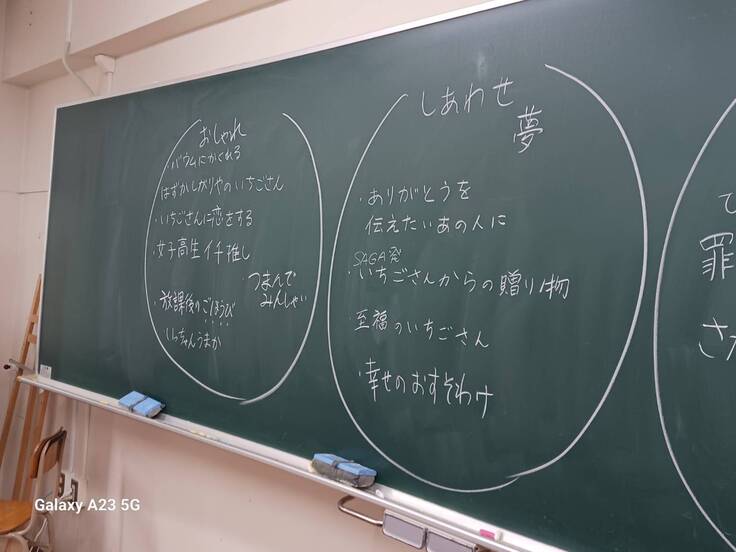 おしゃれ
バウムにかくれる
はずかしがりやのいちごさん
・いちごさんに恋をする
・女子高生イチ推し
つまんで
みんしゃい
・放課後のごほうび
いっちゃんうまか
しあわせ
夢
・ありがとうを
伝えたいあの人に
SAGA発
・いちごさんからの贈り物
至福のいちごさん
・幸せのおすそわけ
罪
さ
Galaxy A23 5G